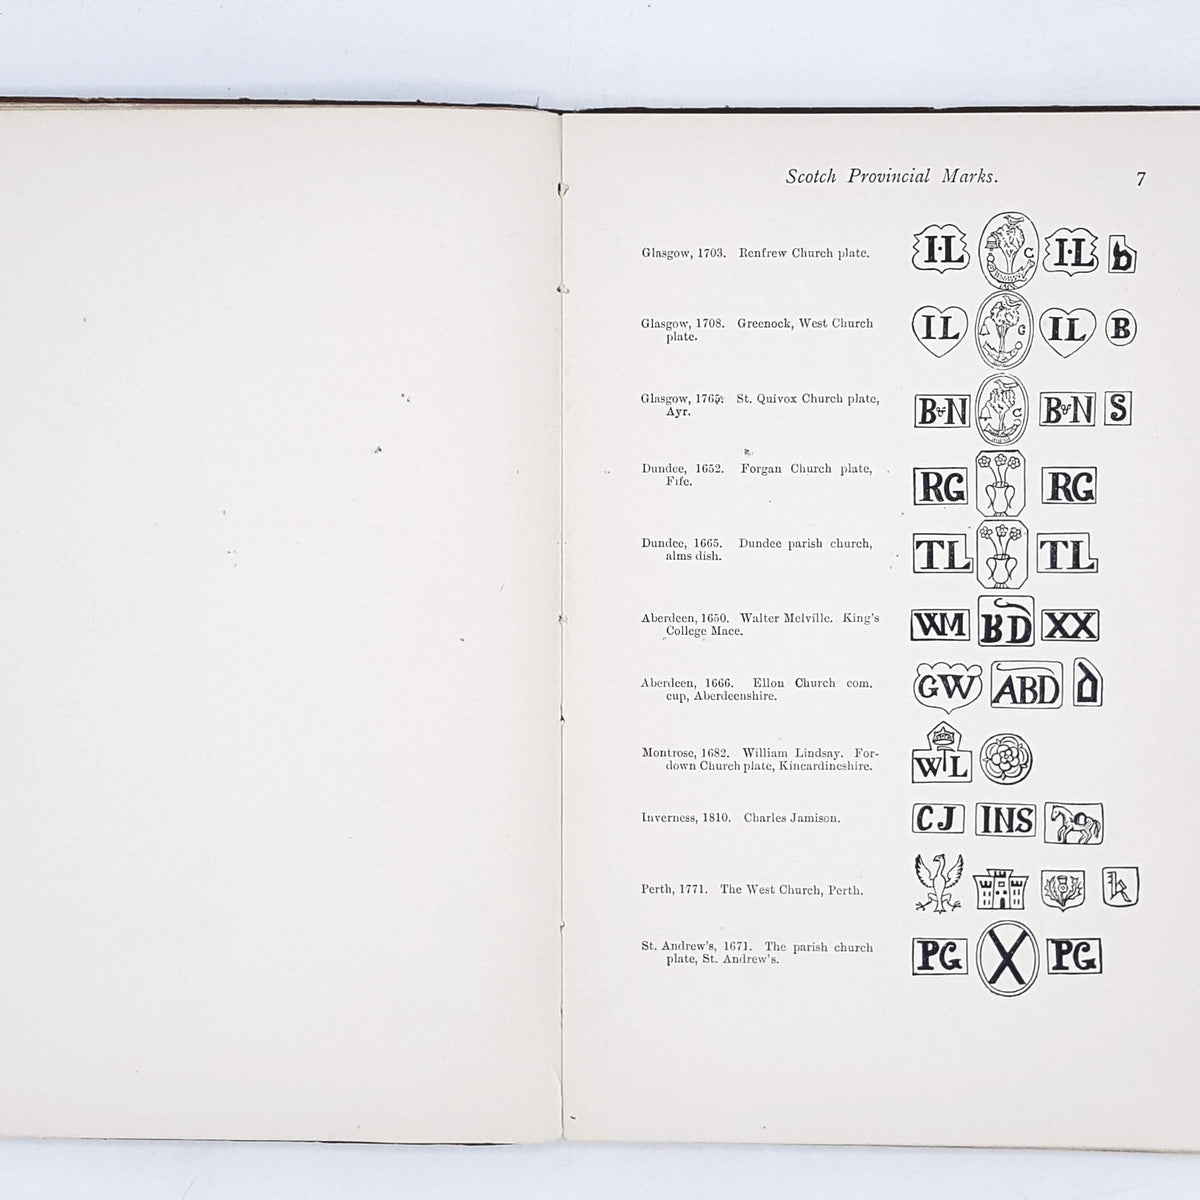 Scotch Provincial Marks. 7
Glasgow, 1703. Renfrew Church plate. I·L C I·L b
Glasgow, 1708. Greenock, West Church IL G IL B
plate.
Glasgow, St. Quivox Church plate, B&N C B&N S
Ayr.
Dundee, 1652. Forgan Church plate, RG RG
Fife.
Dundee, 1665. Dundee parish church, TL TL
alms dish.
Aberdeen, 1650. Walter Melville. King's WM BD XX
College Mace.
Aberdeen, 1666. Ellon Church com. GW ABD
cup, Aberdeenshire.
Montrose, 1682. William Lindsay. For-
down Church plate, Kincardineshire. WL
Inverness, 1810. Charles Jamison. CJ INS
Perth, 1771. The West Church, Perth. k
St. Andrew's, 1671. The parish church PG X PG
plate, St. Andrew's.